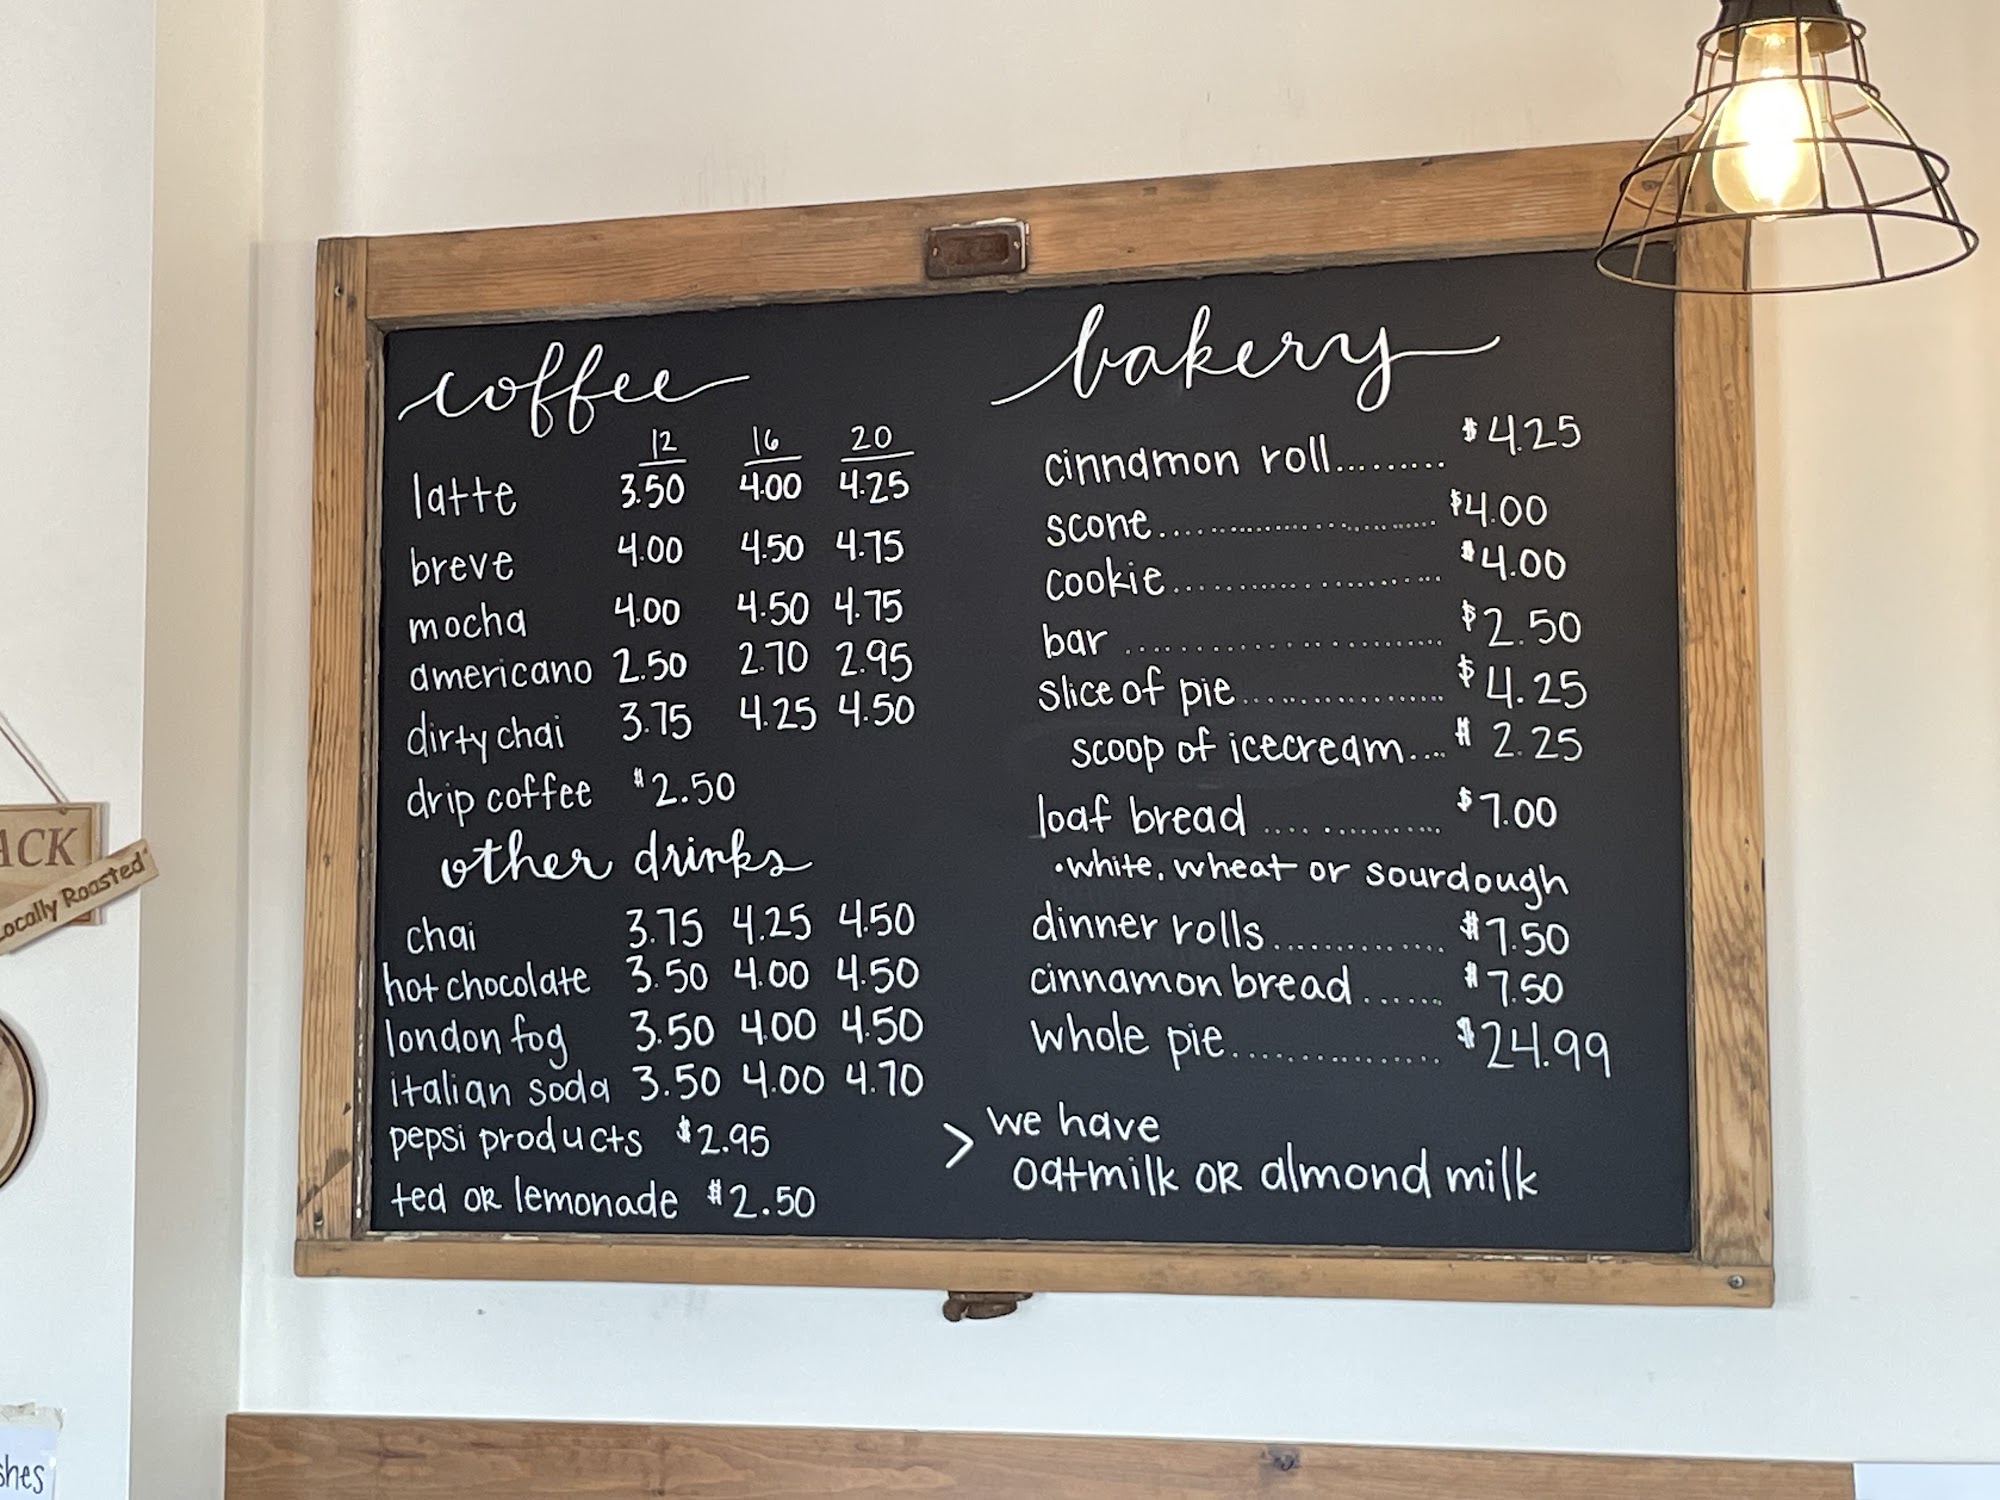 coffee
12 16 20
latte 3.50 4.00 4.25
breve 4.00 4.50 4.75
mocha 4.00 4.50 4.75
americano 2.50 2.70 2.95
dirty chai 3.75 4.25 4.50
drip coffee $2.50
other drinks
chai 3.75 4.25 4.50
hot chocolate 3.50 4.00 4.50
london fog 3.50 4.00 4.50
italian soda 3.50 4.00 4.70
pepsi products $2.95
tea OR lemonade $2.50
bakery
cinnamon roll......... $4.25
scone........................ $4.00
cookie....................... $4.00
bar .......................... $2.50
slice of pie.................. $4.25
scoop of icecream.... $2.25
loaf bread ................ $7.00
•white, wheat or sourdough
dinner rolls.............. $7.50
cinnamon bread....... $7.50
whole pie................. $24.99
> we have
oatmilk OR almond milk
ACK
Locally Roasted
shes